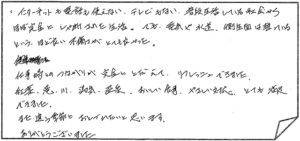 ・インターネットも電話も使えない、テレビもない、普段生活している社会から
ほぼ完全にしゃ断された生活。でも、電気や水道、衛生面は整っている
という、ほど良い不便さがとても良かった。
仕事時とのつながりが完全にとだえて、リフレッシュできました。
紅葉、滝、川、温泉、星空、おいしい食事、やさしい女将、とても満足
できました。
また違う季節におじゃましたいと思います。
ありがとうございました